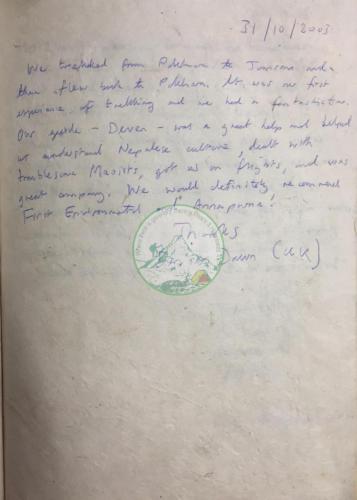 31/10/2003
We trekked from Pokhara to Jomsom and
then flew back to Pokhara. It was our first
experience of trekking and we had a fantastic time.
Our guide - Deven - was a great help and helped
us understand Nepalese culture, dealt with
troublesome Maoists, got us on flights, and was
great company. We would definitely recommend
First Environmental of Annapurna!
Thanks
Dawn (UK)